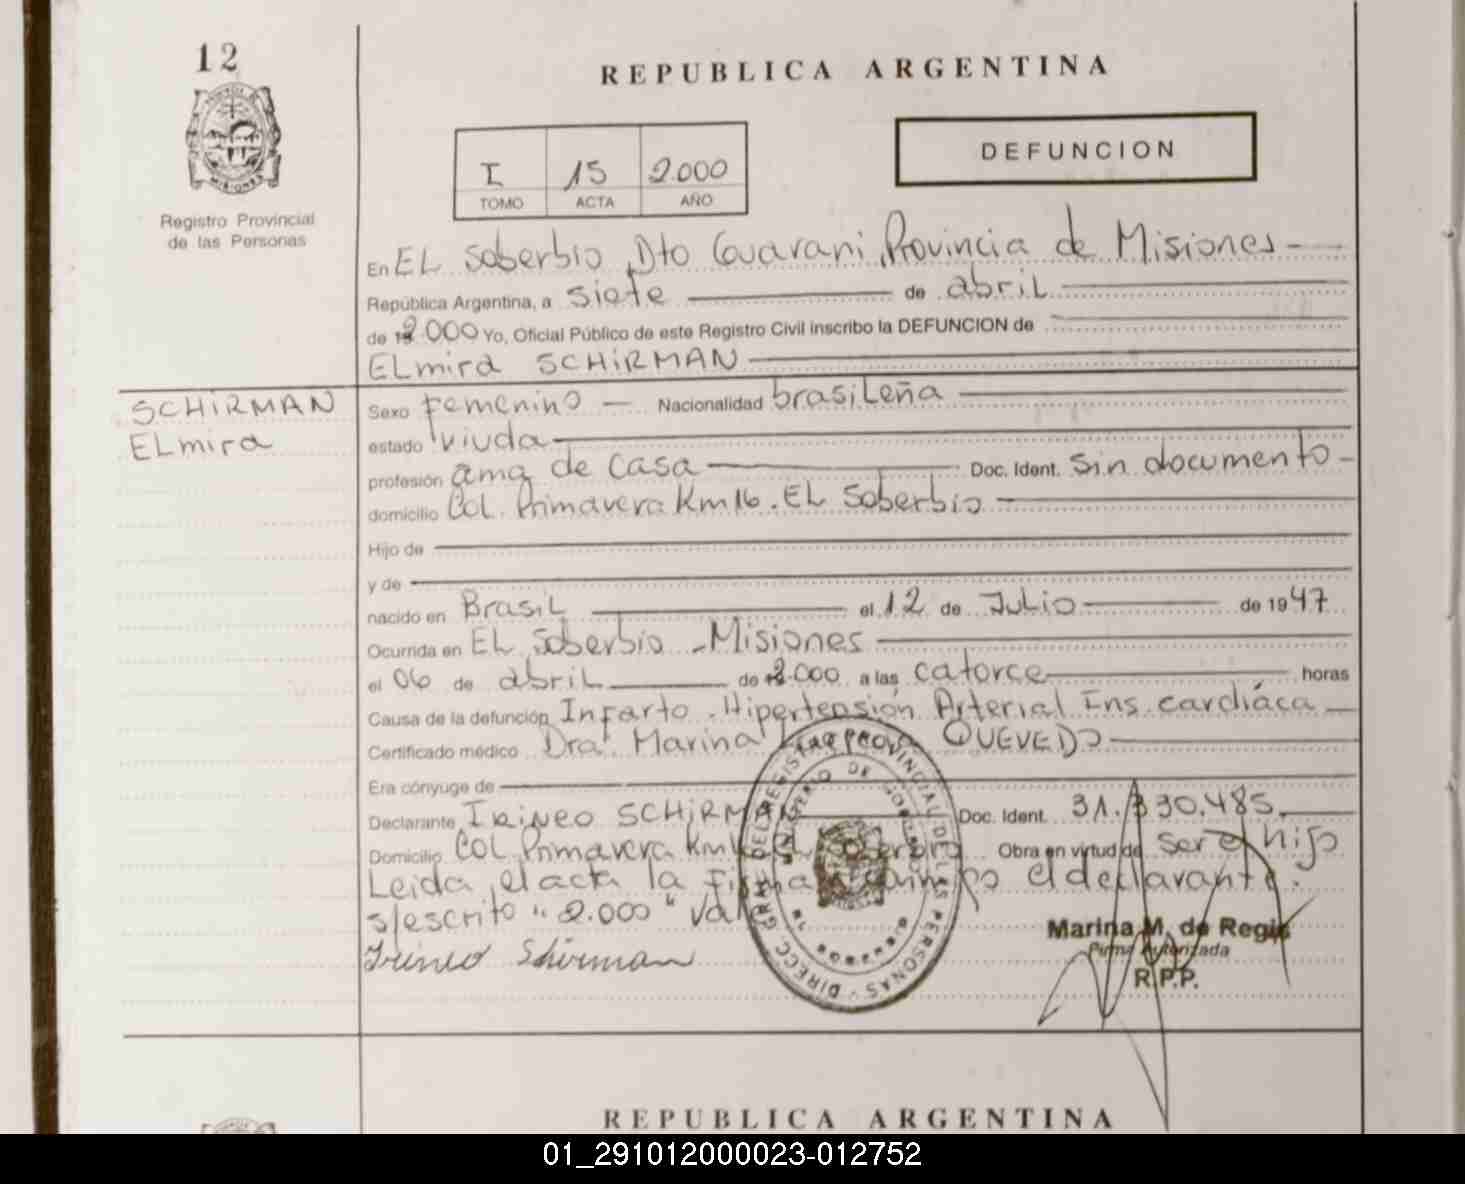 12
REPUBLICA ARGENTINA
DEFUNCION
I 15 2.000
TOMO ACTA AÑO
PROVINCIA DE
MISIONES
Registro Provincial
de las Personas
En EL Soberbio, Dto Guarani, Provincia de Misiones
República Argentina, a siete de abril
de 2.000 Yo, Oficial Público de este Registro Civil inscribo la DEFUNCION de
ELmira SCHIRMAN
SCHIRMAN
ELmira
Sexo Femenino Nacionalidad brasileña
estado viuda
profesión ama de casa Doc. Ident. sin documento
domicilio Col. Primavera Km 16. EL Soberbio
Hijo de
y de
nacido en Brasil el 12 de Julio de 1947
Ocurrida en EL Soberbio - Misiones
el 06 de abril de 2.000 a las catorce horas
Causa de la defunción Infarto - Hipertensión Arterial Ins. cardíaca
Certificado médico Dra. Marina QUEVEDO
Era cónyuge de
Declarante IRINEO SCHIRMAN Doc. Ident. 31.330.485
Domicilio COL Primavera Km 16 EL Soberbio Obra en virtud de ser el hijo
Leida el acta la firma el declarante.
s/escrito "2.000" Vale
Irineo Shirman
DIRECC. GRAL. DEL REGISTRO PROVINCIAL DE LAS PERSONAS
MINISTERIO DE GOBIERNO
Marina M. de Regis
Firma Autorizada
R.P.P.
REPUBLICA ARGENTINA
01_291012000023-012752